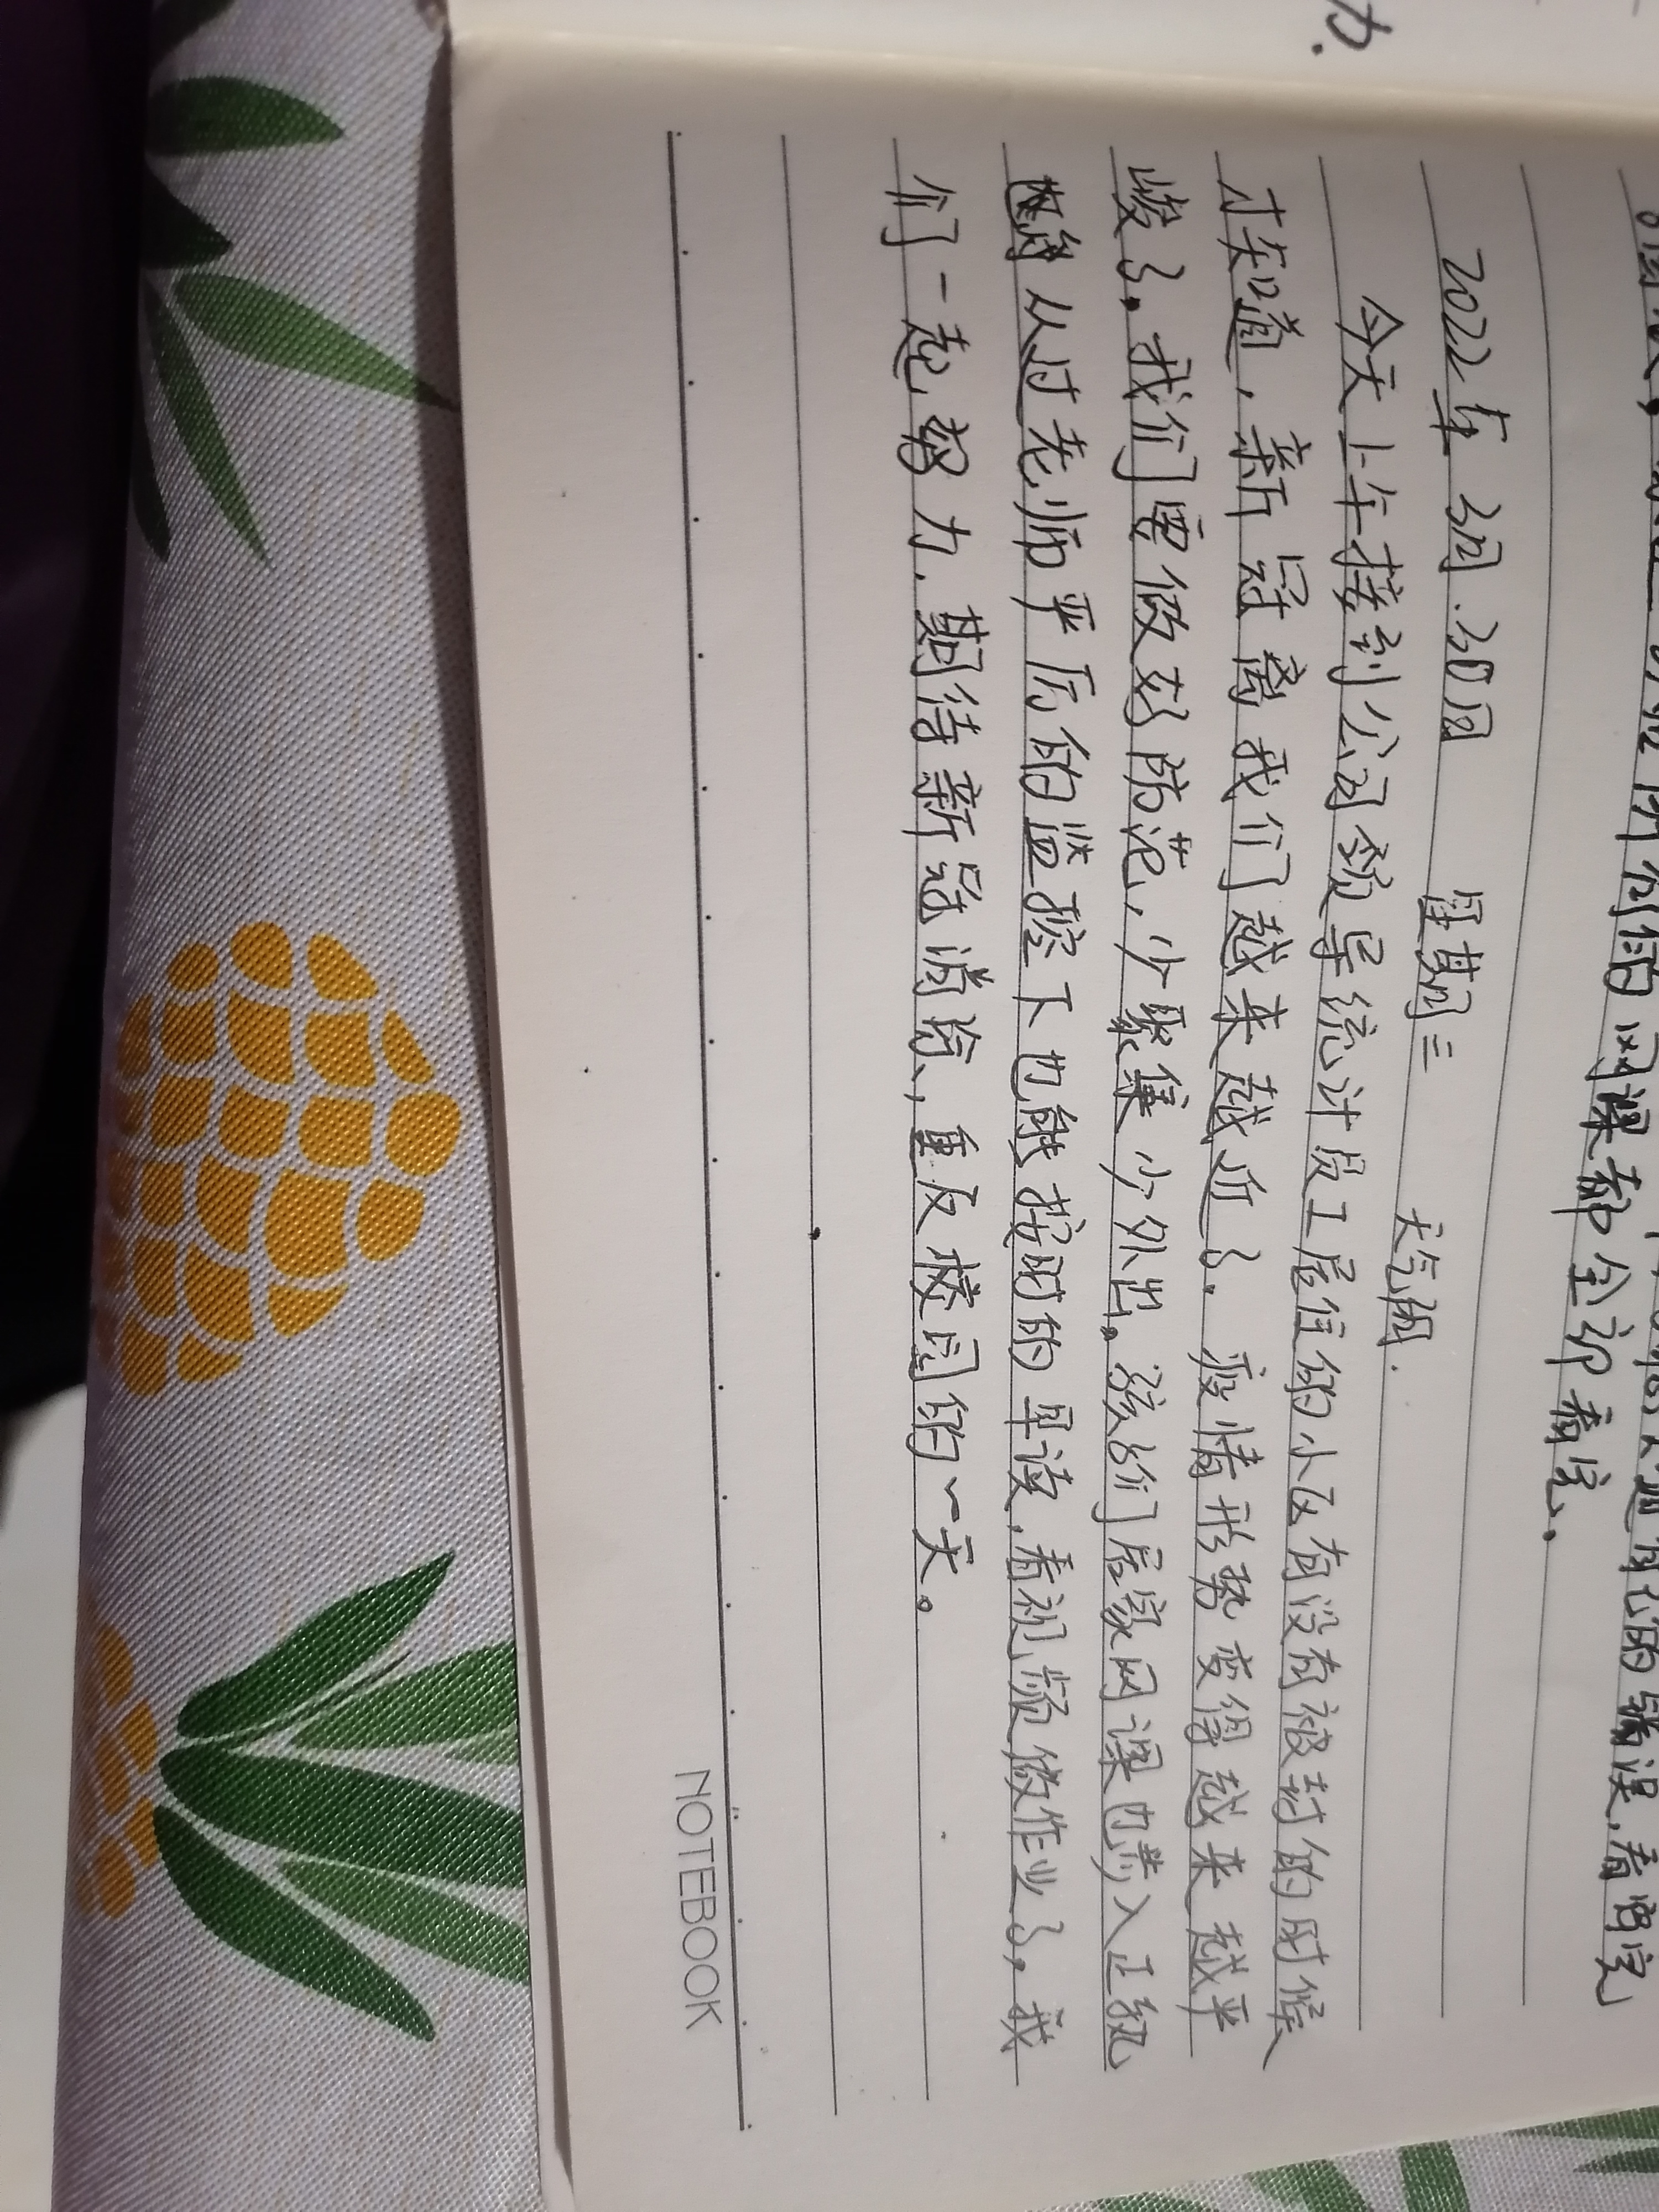 力.
的错误,看得完
网课都全部看完.
2022年 3月.30日 星期三 天气阴.
今天上午接到公司领导统计员工居住的小区有没有被封的时候
才知道,新冠离我们越来越近了.疫情形势变得越来越严
峻了。我们要做好防范,少聚集少外出。孩纷们居家网课也步入正轨
从对老师严厉的监控下也能按时的早读,看视频做作业了。我
们一起努力.期待新冠消失,重反校园的一天。
NOTEBOOK